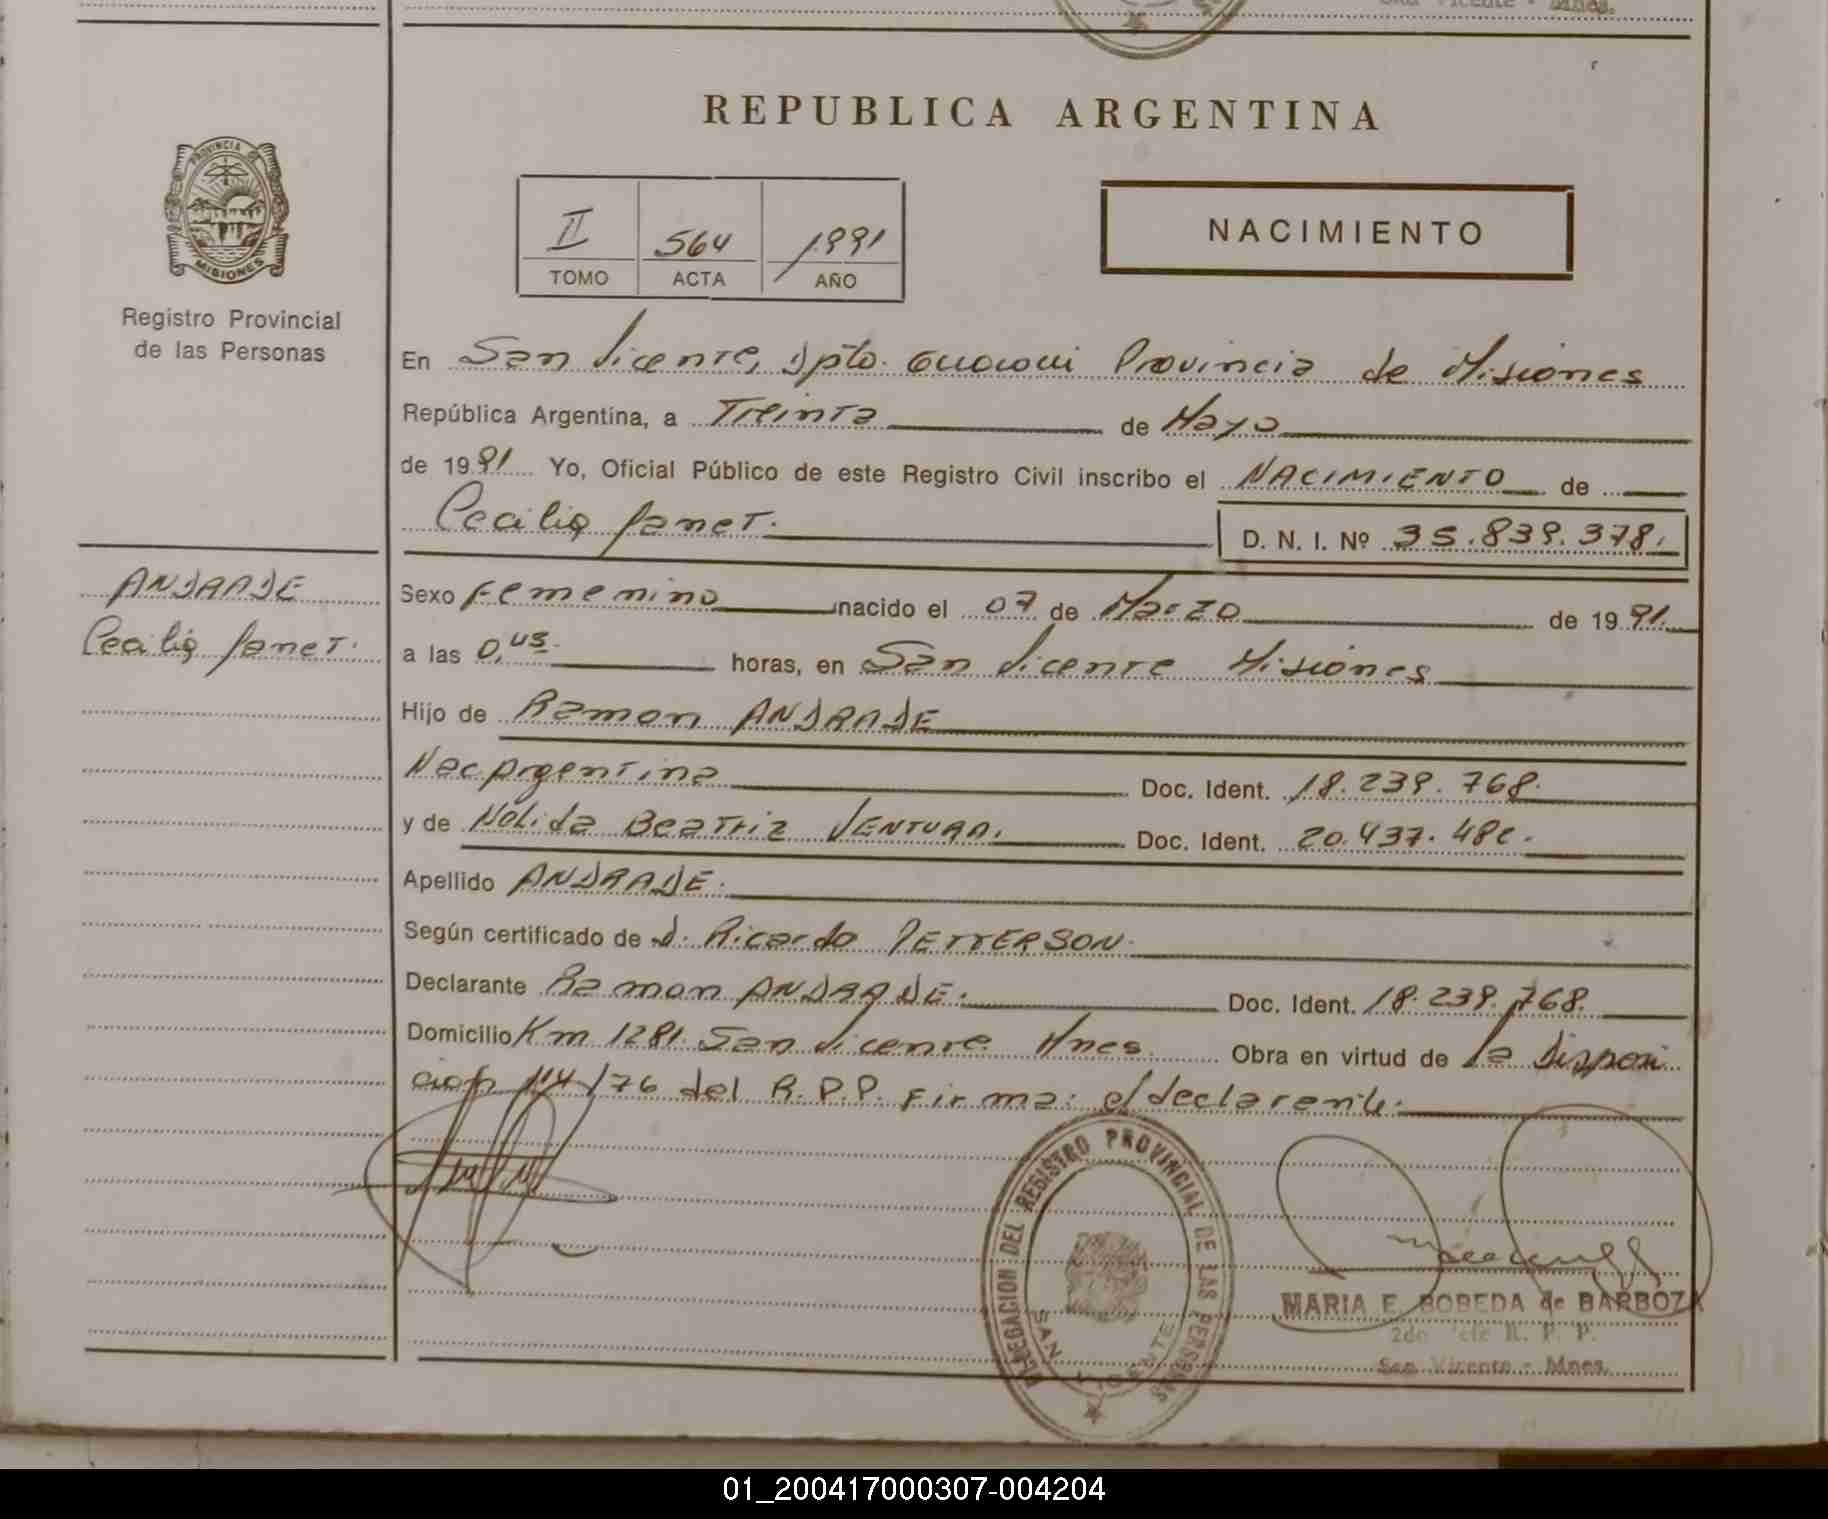 REPUBLICA ARGENTINA
PROVINCIA DE
MISIONES
Registro Provincial
de las Personas
II 564 1991
TOMO ACTA AÑO
NACIMIENTO
En San Vicente, Dpto. Guarani Provincia de Misiones
República Argentina, a Treinta de Mayo
de 1991 Yo, Oficial Público de este Registro Civil inscribo el NACIMIENTO de
Cecilia Janet.
D. N. I. Nº 35.839.378.
ANDRADE
Cecilia Janet.
Sexo Femenino nacido el 07 de Marzo de 1991.
a las 0,45 horas, en San Vicente Misiones
Hijo de Ramon ANDRADE
Nac Argentina Doc. Ident. 18.239.768.
y de Nélida Beatriz VENTURA. Doc. Ident. 20.437.48
Apellido ANDRADE.
Según certificado de D. Ricardo PETTERSON.
Declarante Ramon ANDRADE. Doc. Ident. 18.239.768.
Domicilio Km 1281. San Vicente Mnes. Obra en virtud de la Disposi
cion 114/76 del R.P.P. Firma: el declarante.
DELEGACION DEL REGISTRO PROVINCIAL DE LAS PERSONAS
SAN VICENTE
MARIA E. BOBEDA de BARBOZA
2do Jefe R. P. P.
San Vicente - Mnes.
01_200417000307-004204